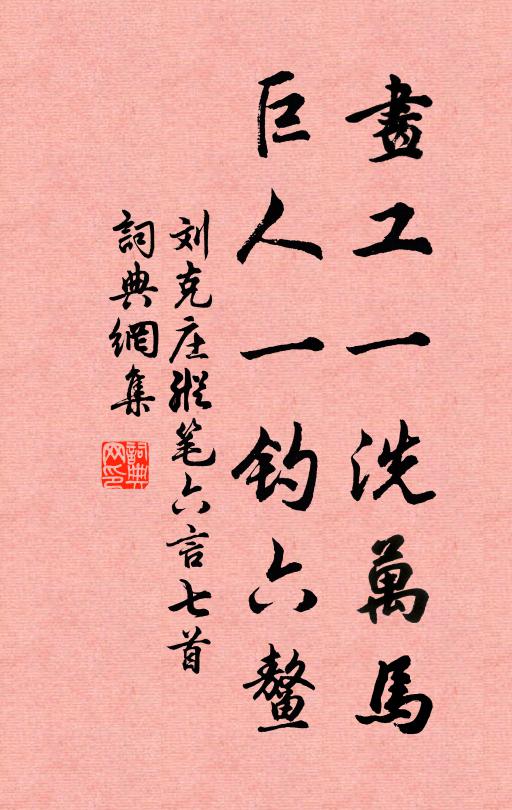 畫工一洗萬馬
巨人一釣六鼇
刘克庄縱笔六言七首
詞典網集
詞典網印